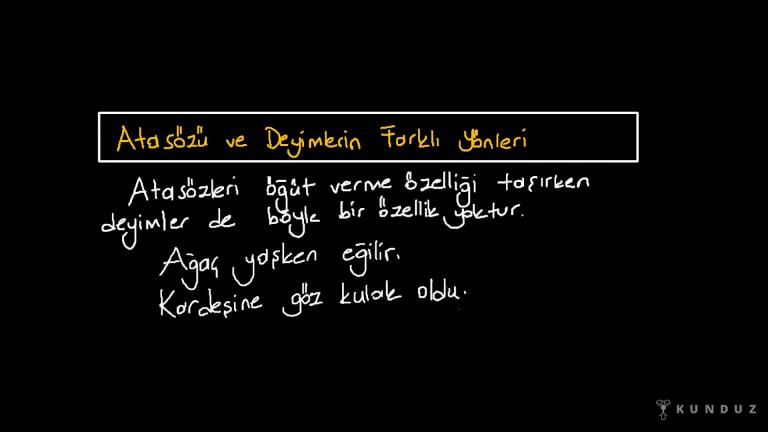 Atasözü ve Deyimlerin Farklı Yönleri
Atasözleri öğüt verme özelliği taşırken
deyimler de böyle bir özellik yoktur.
Ağaç yaşken eğilir.
Kardeşine göz kulak oldu.
KUNDUZ